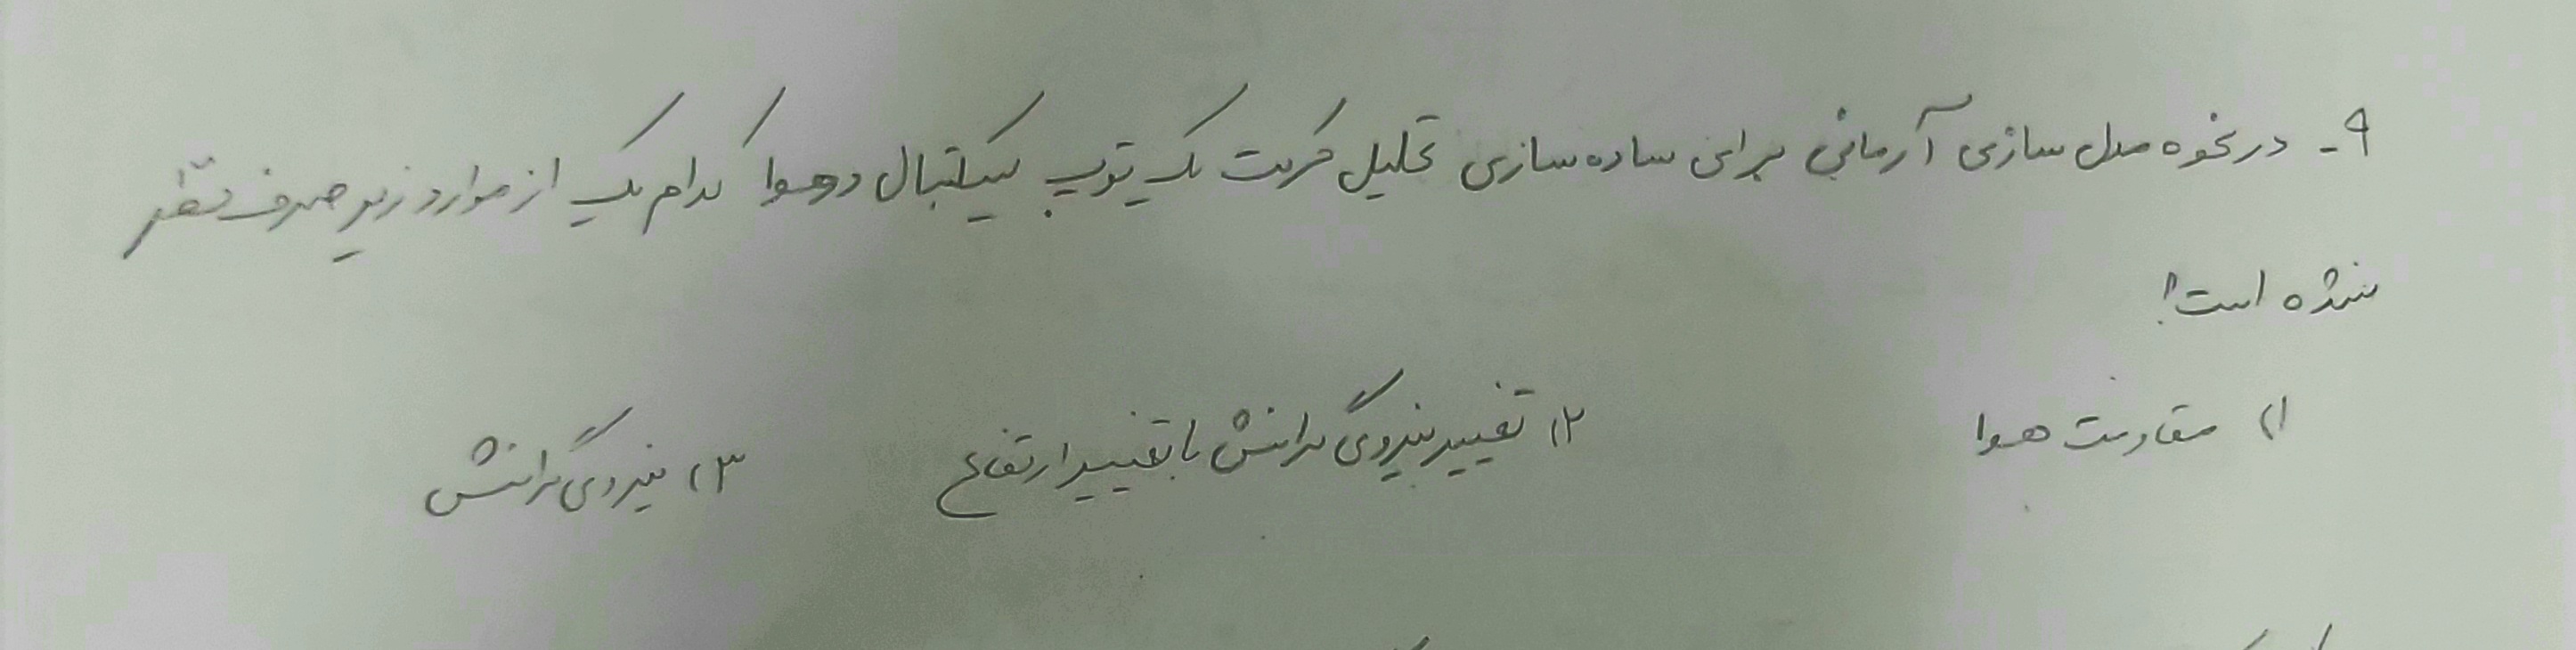 ۹- در نحوه مدل سازی آرمانی برای ساده سازی تحلیل حرکت یک توپ بسکتبال در هوا کدام یک از موارد زیر صرف نظر
نشده است؟
۱) مقاومت هوا ۲) تغییر نیروی گرانش با تغییر ارتفاع ۳) نیروی گرانش